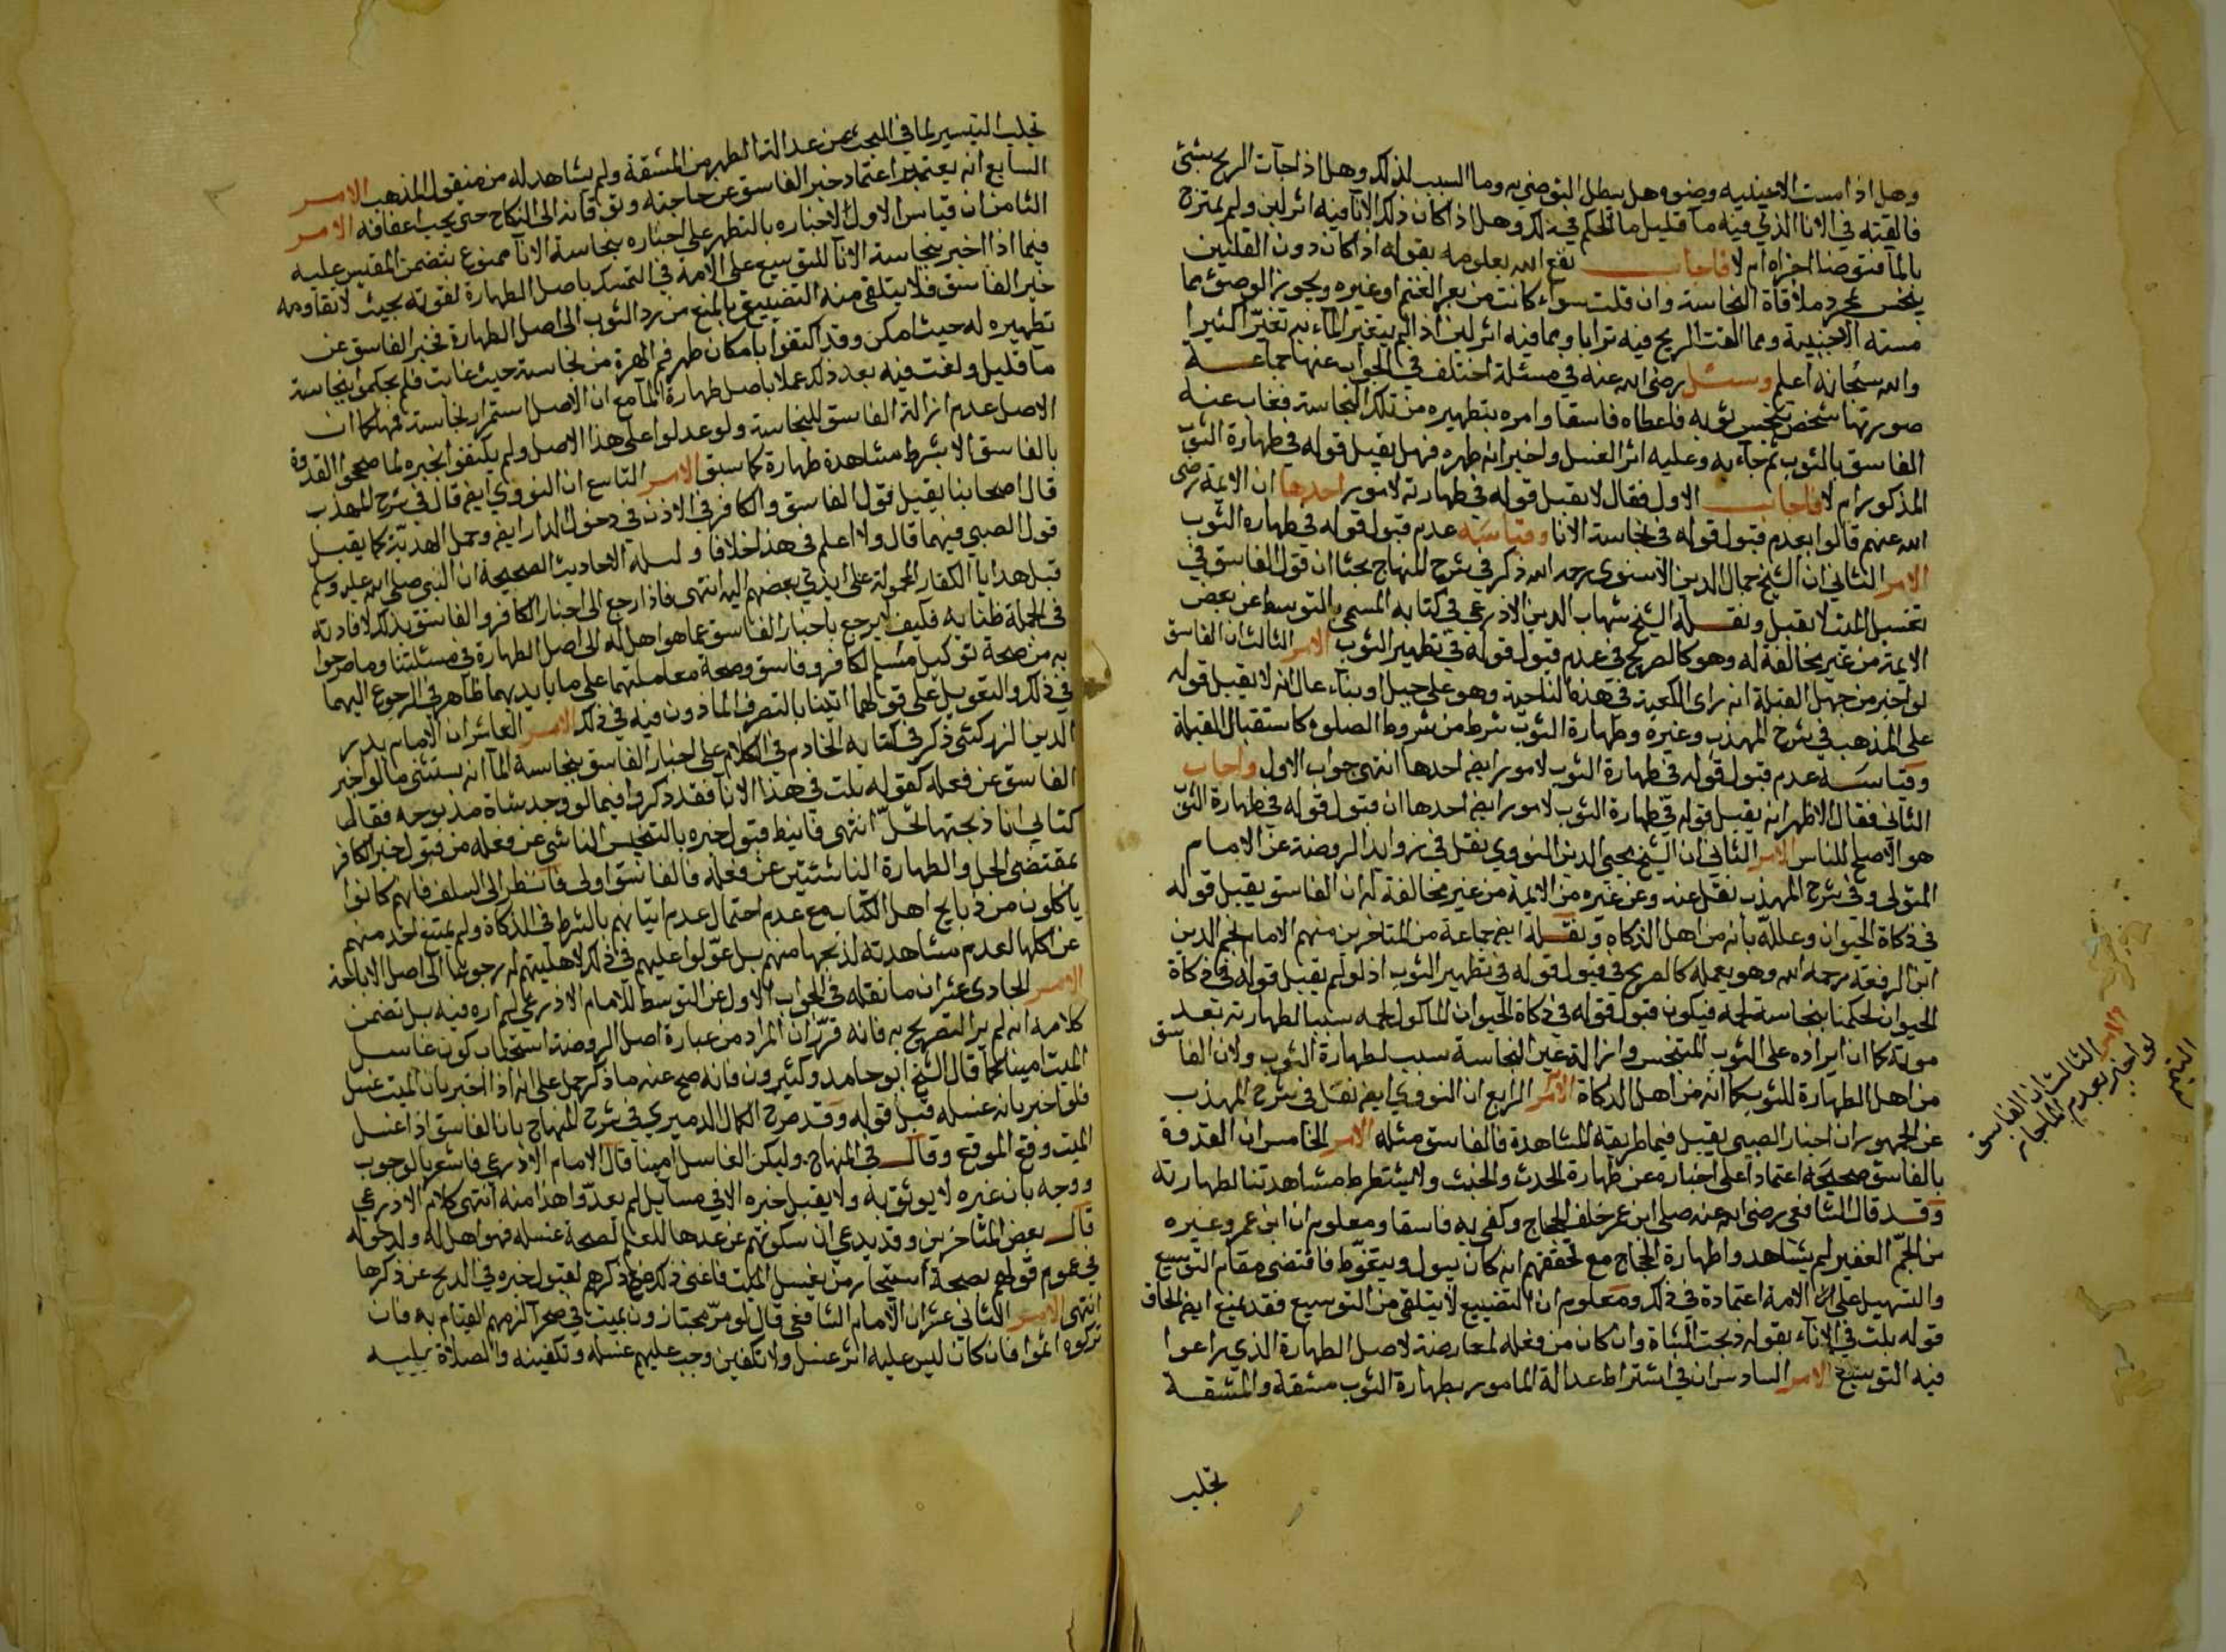 وهل اذا مست الاجنبية وضوه هل يبطل التوضي به وما السبب لذلك وهل اذا جآت الريح بشئ
فالقته في الانا الذي فيه مآ قليل ما الحكم في ذلك وهل اذا كان ذلك الانآ فيه اثر لبن ولم يمتزج
بالمآ فتوضنا اجزاه ام لا فاجاب نفع الله بعلومه بقوله اذا كان دون القلتين
ينجس بمجرد ملاقاة النجاسة وان قلت سواء كانت من بعر الغنم او غيره ويجوز الوضؤ بما
مسته الاجنبية ومما القت الريح فيه ترابا وبما فيه اثر لبن اذا لم يتغير المآء به تغيرا كثيرا
والله سبحانه اعلم وسئل رضي الله عنه في مسئلة اختلف في الجواب عنها جماعة
صورتها شخص تنجس ثوبه فاعطاه فاسقا وامره بتطهيره من تلك النجاسة فغاب عنه
الفاسق بالثوب ثم جآء به وعليه اثر الغسل واخبر انه طهره فهل يقبل قوله في طهارة الثوب
المذكور ام لا فاجاب الاول فقال لا يقبل قوله في طهارته لامور احدها ان الائمة رضي
الله عنهم قالوا بعدم قبول قوله في نجاسة الانا وقياسه عدم قبول قوله في طهارة الثوب
الامر الثاني ان الشيخ جمال الدين الاسنوي رحمه الله ذكر في شرح المنهاج بحثا ان قول الفاسق في
تغسيل الميت لا يقبل ونقله الشيخ شهاب الدين الاذرعي في كتابه المسمى بالتوسط عن بعض
الايمة من غير مخالفة له وهو كالصريح في عدم قبول قوله في تطهير الثوب الامر الثالث ان الفاسق
لو اخبر من جهل القبلة انه راى الكعبة في هذه الناحية وهو على جبل او بناء عال انه لا يقبل قوله
على المذهب في شرح المهذب وغيره وطهارة الثوب شرط من شروط الصلوة كاستقبال القبلة
وقياسه عدم قبول قوله في طهارة الثوب لامور ايض احدها انتهى جواب الاول واجاب
الثاني فقال الاظهر انه يقبل قوله في طهارة الثوب لامور ايض احدها ان قبول قوله في طهارة الثوب
هو الاصلح للناس الامر الثاني ان الشيخ محيي الدين النووي نقل في زوايد الروضة عن الامام
المتولي وفي شرح المهذب نقل عنه وعن غيره من الايمة من غير مخالفة له ان الفاسق يقبل قوله
في ذكاة الحيوان وعلله بانه من اهل الذكاة ونقله ايض جماعة من المتاخرين منهم الامام نجم الدين
ابن الرفعة رحمه الله وهو بعمله كالصريح في قبول قوله في تطهير الثوب اذ لو لم يقبل قوله في ذكاة
الحيوان لحكمنا بنجاسة لحمه فيكون قبول قوله في ذكاة الحيوان المأكول لحمه سببا لطهارته بعد
موته كما ان ايراده على الثوب المتنجس وازالة عين النجاسة سبب لطهارة الثوب ولان الفاسق
من اهل الطهارة للثوب كما انه من اهل الذكاة الامر الرابع ان النووي ايض نقل في شرح المهذب
عن الجمهور ان اخبار الصبي يقبل فيما طريقه المشاهدة فالفاسق مثله الامر الخامس ان القدوة
بالفاسق صحيحة اعتمادا على اخباره عن طهارة الحدث والخبث ولا يشترط مشاهدتنا لطهارته
وقد قال الشافعي رضي الله عنه صلى ابن عمر خلف الحجاج وكفى به فاسقا ومعلوم ان ابن عمر وغيره
من الجمّ الغفير لم يشاهدوا طهارة الحجاج مع تحققهم انه كان يبول ويتغوط فاقتضى مقام التوسيع
والتسهيل على الامة اعتماده في ذلك ومعلوم ان التضييع لا يتلقى من التوسيع فقد يمنع ايض الحاق
قوله بلت في الاناء بقوله ذبحت الشاة وان كان من فعله لمعارضة لاصل الطهارة الذي راعوا
فيه التوسيع الامر السادس ان في اشتراط عدالة المامور بطهارة الثوب مشقة والمشقة
تجلب
والامر الثالث ان الفاسق
لو اخبر بعدم الماء جاز
التيمم
تجلب التيسير لما في البحث عن عدالة المطهر من المشقة ولم يشاهد له من منقول المذهب الامر
السابع انه يعتمد اعتماد خبر الفاسق عن حاجته وتوقانه الى النكاح حتى يجب اعفافه الامر
الثامن ان قياس الاول الاخباره بالتطهر على اخباره بنجاسة الانآ ممنوع بتضمن المقيس عليه
فيما اذا اخبر بنجاسة الانآ للتوسيع على الامة في التمسك باصل الطهارة لقوته بحيث لا تقاومه
خبر الفاسق فلا يتلقى منه التضييق بالمنع من رد الثوب الى اصل الطهارة بخبر الفاسق عن
تطهيره له حيث امكن وقد اكتفوا بامكان طهر فم الهرة من نجاسته حيث غابت فلم يحكموا بنجاسة
ما قليل ولغت فيه بعد ذلك عملا باصل طهارة المآ مع ان الاصل استمرار نجاسة فمها كما ان
الاصل عدم ازالة الفاسق للنجاسة ولو عدلوا على هذا الاصل ولم يكتفوا بخبره لما صححوا القدوة
بالفاسق الا بشرط مشاهدة طهارة كما سبق الامر التاسع ان النووي ايض قال في شرح المهذب
قال اصحابنا يقبل قول الفاسق والكافر في الاذن في دخول الدار ايض وحمل الهدية كما يقبل
قول الصبي فيهما قال ولا اعلم في هذا خلافا ودليله الاحاديث الصحيحة ان النبي صلى الله عليه وسلم
قبل هدايا الكفار المحمولة على ايدي بعضهم اليه انتهى فاذا رجع الى اخبار الكافر والفاسق بذلك لافادته
في الجملة ظنا به فكيف لا يرجع باخبار الفاسق عما هو اهل له الى اصل الطهارة في مسئلتنا وما صرحوا
به من صحة توكيل مسلم لكافر وفاسق وصحة معاملتهما على ما بايديهما ظاهر في الرجوع اليهما
في ذلك والتعويل على قولهما اتينا بالتصرف الماذون فيه في ذلك الامر العاشر ان الامام بدر
الدين الزركشي ذكر في كتابه الخادم في الكلام على اخبار الفاسق بنجاسة المآ انه يستثنى ما لو اخبر
الفاسق عن فعله كقوله بلت في هذا الانآ فقد ذكروا فيما لو وجد شاة مذبوحه فقال
كتابي انا ذبحتها تحلّ انتهى فانيط قبول خبره بالتنجيس الناشي عن فعله من قبول خبر الكافر
بمقتضى الحل والطهارة الناشئتين عن فعله فالفاسق اولى فانظر الى السلف فانهم كانوا
ياكلون من ذبايح اهل الكتاب مع عدم احتمال عدم اتيانهم بالشرط في الذكاة ولم يمتنع احد منهم
عن اكلها لعدم مشاهدته لذبحها منهم بل عوّلوا عليهم في ذلك لاهليتهم له رجوعا الى اصل الاباحة
الامر الحادي عشر ان ما نقله في الجواب الاول عن التوسط للامام الاذرعي لم اره فيه بل تضمن
كلامه انه لم ير التصريح به فانه قرّر ان المراد من عبارة اصل الروضة استحباب كون غاسل
الميت امينا كما قال الشيخ ابو حامد وكثيرون فانه صح عنه ما ذكر حمل على انه اذا اخبر بان الميت غسل
فلو اخبر بانه غسله قبل قوله وقد صرح الكمال الدميري في شرح المنهاج بانا الفاسق اذا غسل
الميت وقع الموقع وقال في المنهاج وليكن الغاسل امينا قال الامام الاذرعي فاشعر بالوجوب
ووجه بان غيره لا يوثق به ولا يقبل خبره الا في مسايل لم يعدّوا هذا منه انتهى كلام الاذرعي
قال بعض المتاخرين وقد يدعي ان سكوتهم عن عدها للعلم لصحة غسله فهو اهل له ولدخوله
في عموم قولهم بصحة استيجار من يغسل الميت فاغنى ذلك عن ذكرهم لقبول خبره في الذبح عن ذكرها
انتهى الامر الثاني عشر ان الامام الشافعي قال لو مرّ مجتازون بميت في صحرآ لزمهم القيام به فان
تركوه اثموا فان كان ليس عليه اثر غسل ولا تكفين وجب عليهم غسله وتكفينه والصلاة عليه